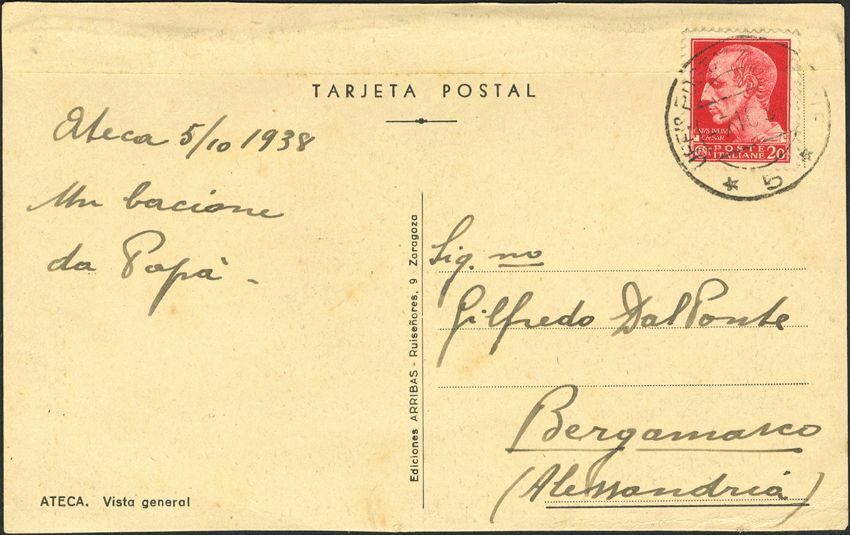 TARJETA POSTAL
Ateca 5/10 1938
Un bacione
da Papà -
ATECA. Vista general
Ediciones ARRIBAS - Ruiseñores, 9 - Zaragoza
Sig. no
Gilfredo Dal Ponte
Bergamasco
(Alessandria)
CAIVS IVLIVS
CAESAR
POSTE
ITALIANE 20
5